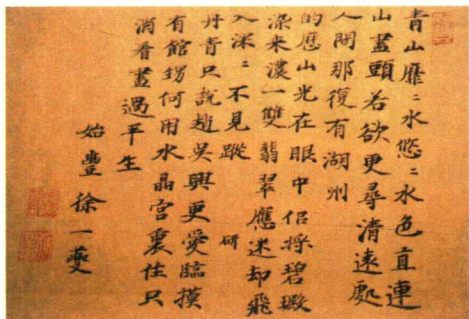 青山靡〻水悠〻水色直連
山盡頭若欲更尋清遠處
人間那復有湖州
的應山光在眼中侶採碧瑕
深來濃一雙翡翠應迷却飛
入深〻不見蹤
研
丹青只說趙吳興更愛臨摸
有館甥何用水晶宮裏住只
消看畫過平生
始豐徐一夔